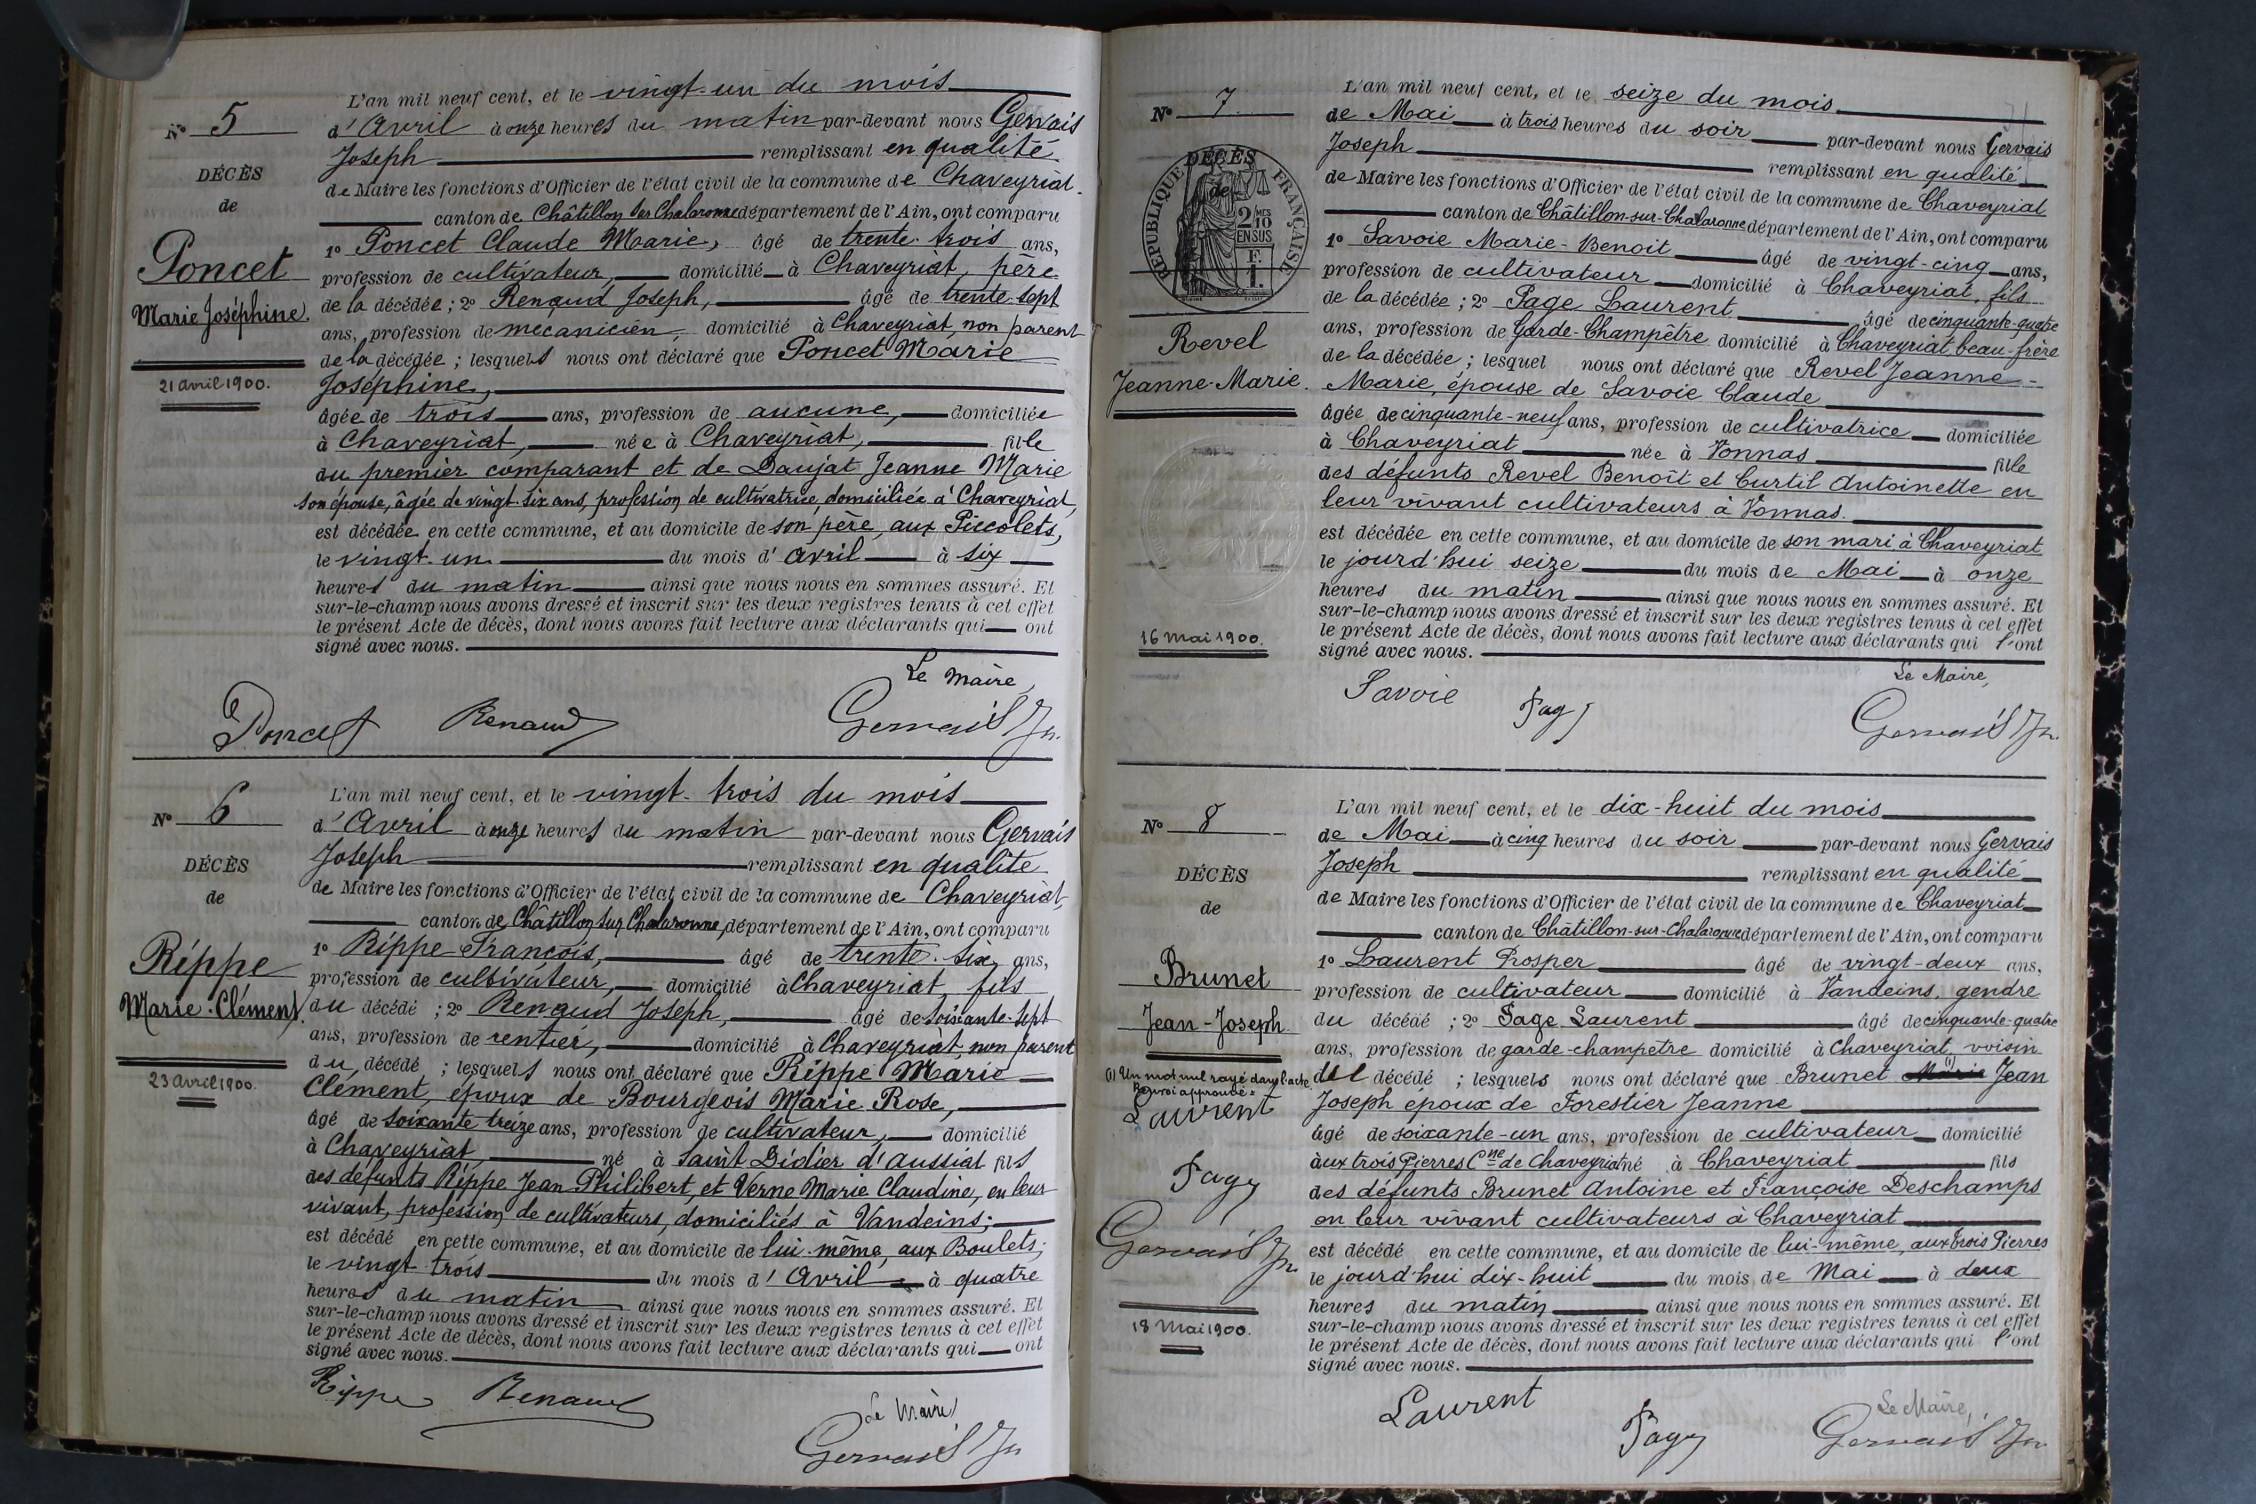 N° 5
DÉCÈS
de
Poncet
Marie Joséphine.
21 avril 1900.
L'an mil neuf cent, et le vingt-un du mois
d'Avril à onze heures du matin par-devant nous Gervais
Joseph remplissant en qualité
de Maire les fonctions d'Officier de l'état civil de la commune de Chaveyriat.
canton de Châtillon sur Chalaronne département de l'Ain, ont comparu
1° Poncet Claude Marie, âgé de trente-trois ans,
profession de cultivateur, domicilié à Chaveyriat, père
de la décédée ; 2° Renaud Joseph, âgé de trente-sept
ans, profession de mecanicien, domicilié à Chaveyriat, non parent
de la décédée ; lesquels nous ont déclaré que Poncet Marie
Joséphine,
âgée de trois ans, profession de aucune, domiciliée
à Chaveyriat, née à Chaveyriat, fille
du premier comparant et de Daujat Jeanne Marie
son épouse, âgée de vingt-six ans, profession de cultivatrice, domiciliée à Chaveyriat,
est décédée en cette commune, et au domicile de son père, aux Piccolets,
le vingt-un du mois d'avril à six
heures du matin ainsi que nous nous en sommes assuré. Et
sur-le-champ nous avons dressé et inscrit sur les deux registres tenus à cet effet
le présent Acte de décès, dont nous avons fait lecture aux déclarants qui ont
signé avec nous.
Le Maire,
Poncet Renaud Gervais Jh.
N° 6
DÉCÈS
de
Rippe
Marie-Clément.
23 avril 1900.
L'an mil neuf cent, et le vingt-trois du mois
d'Avril à onze heures du matin par-devant nous Gervais
Joseph remplissant en qualité
de Maire les fonctions d'Officier de l'état civil de la commune de Chaveyriat,
canton de Châtillon sur Chalaronne, département de l'Ain, ont comparu
1° Rippe François, âgé de trente-six ans,
profession de cultivateur, domicilié à Chaveyriat, fils
du décédé ; 2° Renaud Joseph, âgé de soixante-sept
ans, profession de rentier, domicilié à Chaveyriat, non parent
du décédé ; lesquels nous ont déclaré que Rippe Marie
Clément, époux de Bourgeois Marie Rose,
âgé de soixante treize ans, profession de cultivateur, domicilié
à Chaveyriat, né à Saint Didier d'Aussiat fils
des défunts Rippe Jean Philibert, et Verne Marie Claudine, en leur
vivant, profession de cultivateurs, domiciliés à Vandeins;
est décédé en cette commune, et au domicile de lui-même, aux Boulets,
le vingt-trois du mois d'Avril à quatre
heures du matin ainsi que nous nous en sommes assuré. Et
sur-le-champ nous avons dressé et inscrit sur les deux registres tenus à cet effet
le présent Acte de décès, dont nous avons fait lecture aux déclarants qui ont
signé avec nous.
Rippe Renaud Le Maire,
Gervais Jh
N° 7
DÉCÈS
de
RÉPUBLIQUE FRANÇAISE
2 MES
10
EN SUS
F.
1.
Revel
Jeanne-Marie.
16 Mai 1900.
L'an mil neuf cent, et le seize du mois
de Mai à trois heures du soir par-devant nous Gervais
Joseph remplissant en qualité
de Maire les fonctions d'Officier de l'état civil de la commune de Chaveyriat
canton de Châtillon-sur-Chalaronne département de l'Ain, ont comparu
1° Savoie Marie-Benoit âgé de vingt-cinq ans,
profession de cultivateur domicilié à Chaveyriat, fils
de la décédée ; 2° Page Laurent âgé de cinquante-quatre
ans, profession de Garde-Champêtre domicilié à Chaveyriat beau-frère
de la décédée ; lesquel nous ont déclaré que Revel Jeanne-
Marie, épouse de Savoie Claude
âgée de cinquante-neuf ans, profession de cultivatrice domiciliée
à Chaveyriat née à Vonnas fille
des défunts Revel Benoît et Curtil Antoinette en
leur vivant cultivateurs à Vonnas.
est décédée en cette commune, et au domicile de son mari à Chaveyriat
le jourd'hui seize du mois de Mai à onze
heures du matin ainsi que nous nous en sommes assuré. Et
sur-le-champ nous avons dressé et inscrit sur les deux registres tenus à cet effet
le présent Acte de décès, dont nous avons fait lecture aux déclarants qui l'ont
signé avec nous.
Le Maire,
Savoie Pagy Gervais Jh.
N° 8
DÉCÈS
de
Brunet
Jean-Joseph
(1) Un mot nul rayé dans l'acte
Renvoi approuvé =
Laurent
Pagy
Gervais Jh
18 Mai 1900.
L'an mil neuf cent, et le dix-huit du mois
de Mai à cinq heures du soir par-devant nous Gervais
Joseph remplissant en qualité
de Maire les fonctions d'Officier de l'état civil de la commune de Chaveyriat
canton de Châtillon-sur-Chalaronne département de l'Ain, ont comparu
1° Laurent Prosper âgé de vingt-deux ans,
profession de cultivateur domicilié à Vandeins, gendre
du décédé ; 2° Page Laurent âgé de cinquante-quatre
ans, profession de garde-champetre domicilié à Chaveyriat voisin
del décédé ; lesquels nous ont déclaré que Brunet Marie (1) Jean
Joseph epoux de Forestier Jeanne
âgé de soixante-un ans, profession de cultivateur domicilié
aux trois Pierres Cne de Chaveyriat né à Chaveyriat fils
des défunts Brunet Antoine et Françoise Deschamps
en leur vivant cultivateurs à Chaveyriat
est décédé en cette commune, et au domicile de lui-même, aux trois Pierres
le jourd'hui dix-huit du mois de Mai à deux
heures du matin ainsi que nous nous en sommes assuré. Et
sur-le-champ nous avons dressé et inscrit sur les deux registres tenus à cet effet
le présent Acte de décès, dont nous avons fait lecture aux déclarants qui l'ont
signé avec nous.
Laurent Pagy Le Maire,
Gervais Jh